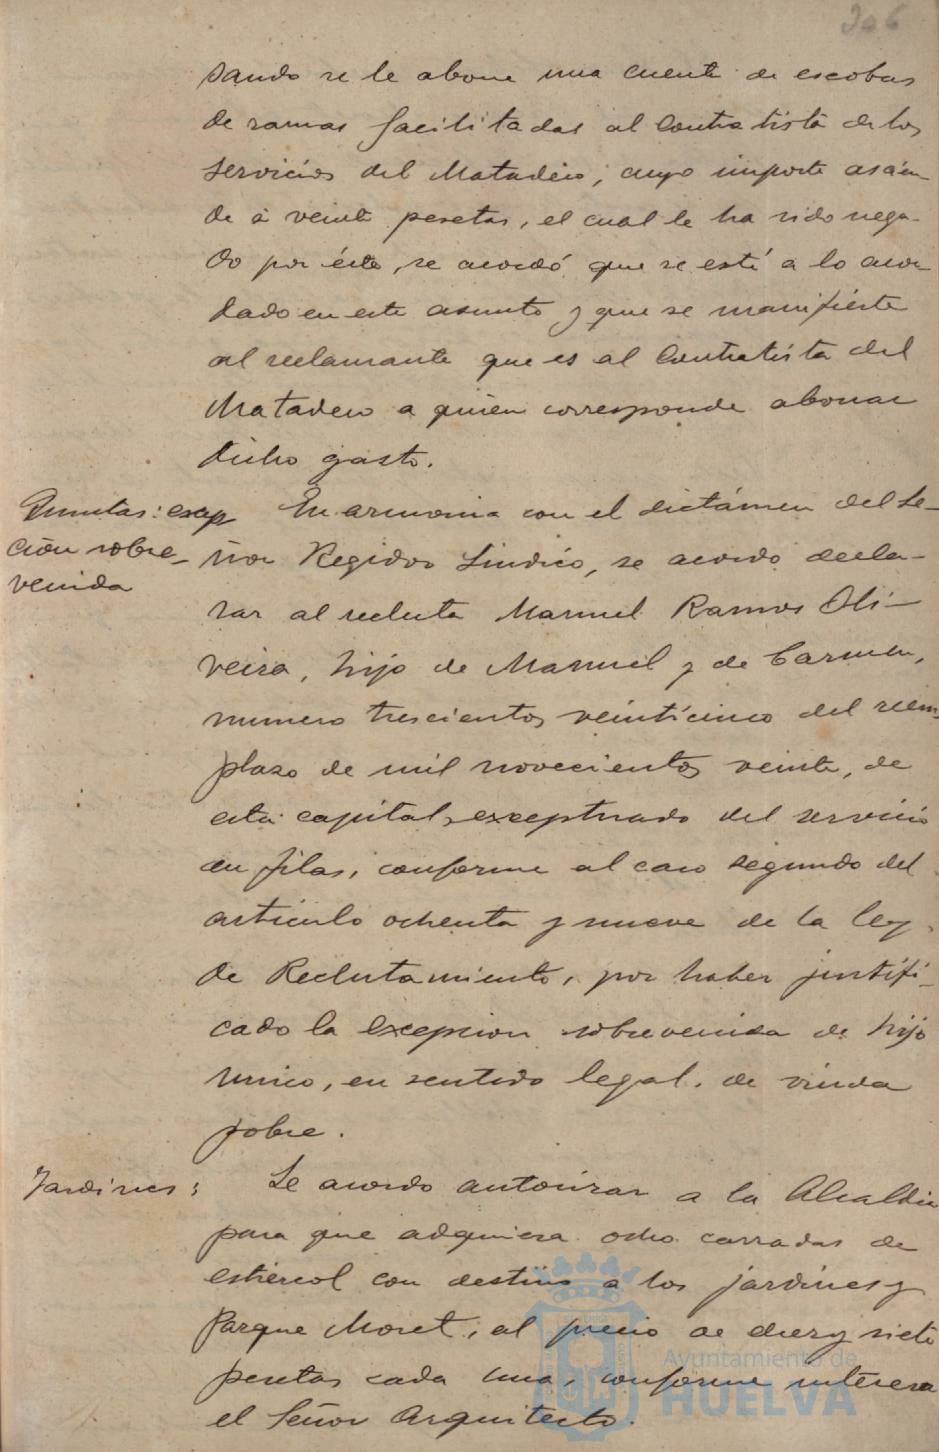 306
sando se le abone una cuenta de escobas
de ramas facilitadas al Contratista de los
servicios del Matadero, cuyo importe ascien-
de á veinte pesetas, el cual le ha sido nega-
do por éste, se acordó que se esté a lo acor-
dado en este asunto y que se manifieste
al reclamante que es al Contratista del
Matadero a quien corresponde abonar
dicho gasto.
Quintas: excep
ción sobre-
venida
En armonia con el dictámen del Se-
ñor Regidor Sindico, se acordo decla-
rar al recluta Manuel Ramos Oli-
veira, hijo de Manuel y de Carmen,
numero trescientos veinticinco del reem-
plazo de mil novecientos veinte, de
esta capital, exceptuado del servicio
en filas, conforme al caso segundo del
artículo ochenta y nueve de la ley
de Reclutamiento, por haber justifi-
cado la excepcion sobrevenida de hijo
unico, en sentido legal, de viuda
pobre.
Jardines:
Se acordo autorizar a la Alcaldia
para que adquiera ocho carradas de
estiercol con destino a los jardines y
Parque Moret, al precio de diez y siete
pesetas cada una, conforme interesa
el Señor Arquitecto.
Ayuntamiento de
HUELVA